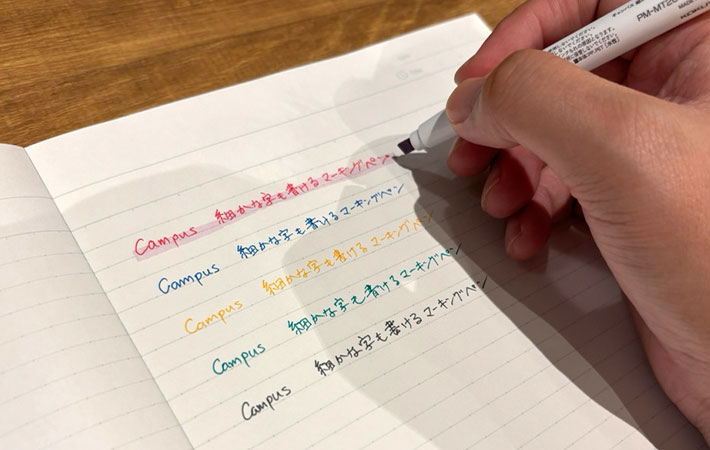 Campus 細かな字も書けるマーキングペン
Campus 細かな字も書けるマーキングペン
Campus 細かな字も書けるマーキングペン
Campus 細かな字も書けるマーキングペン
Campus 細かな字も書けるマーキングペン